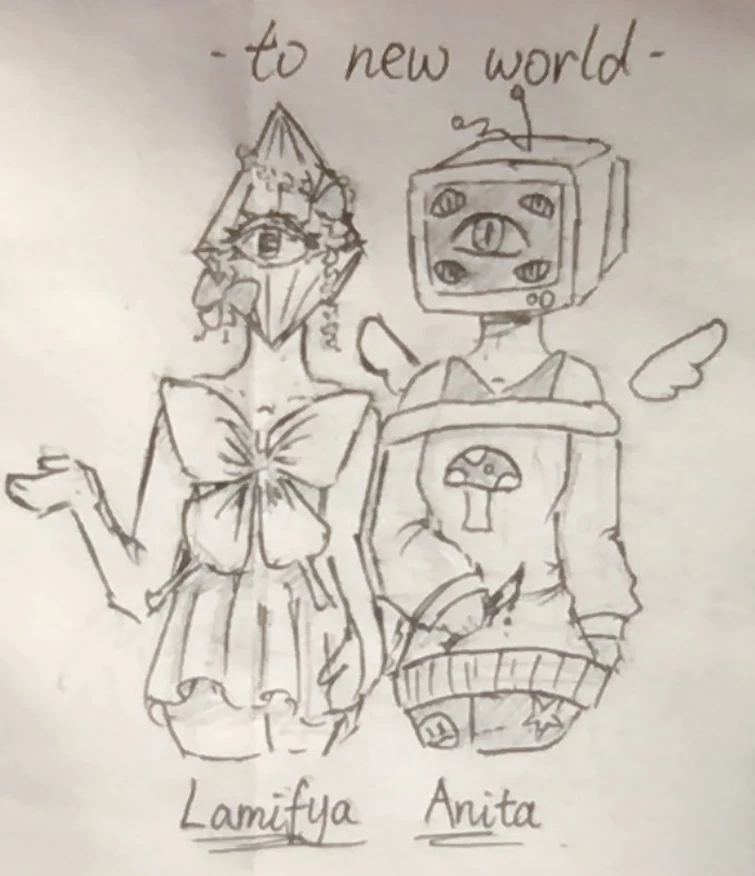 - to new world -
Lamifya Anita